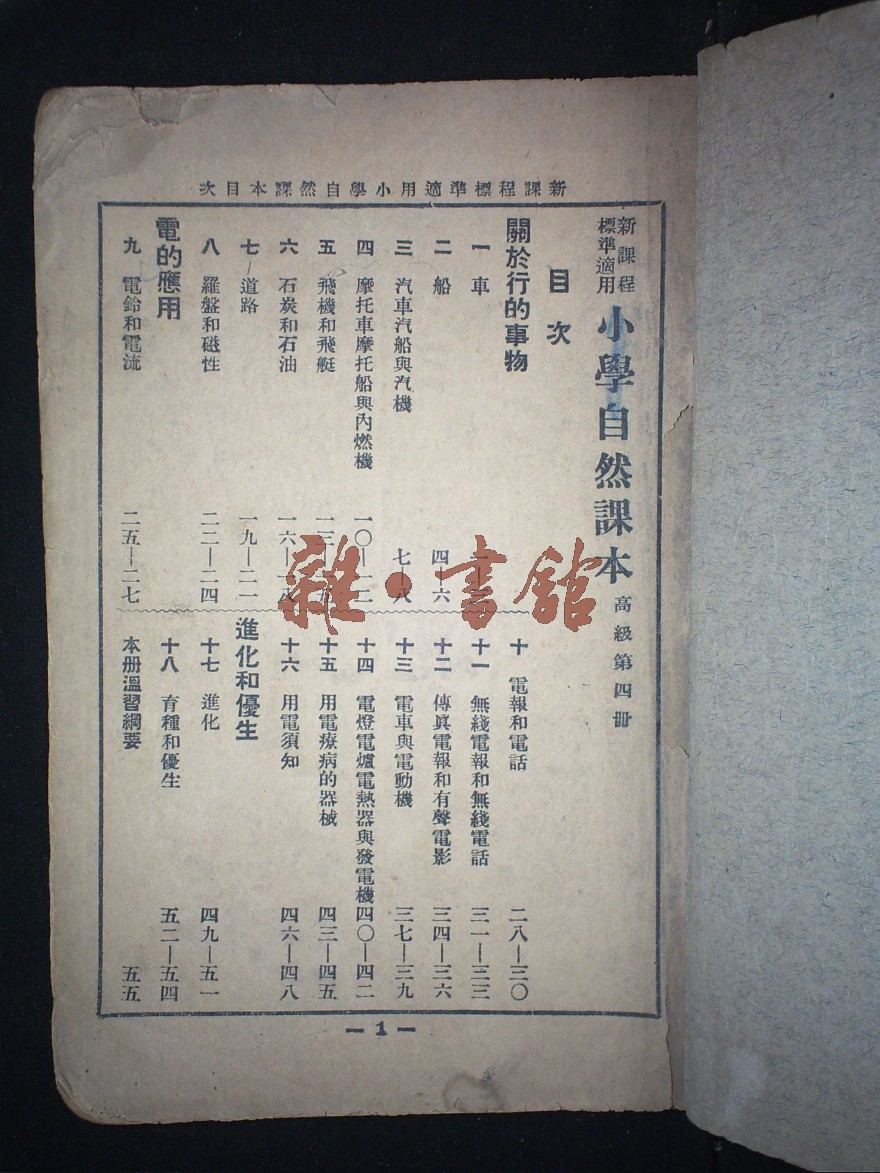 新課程標準適用小學自然課本目次
新課程
標準適用
小學自然課本
高級第四冊
目次
關於行的事物
一 車
二 船 四—六
三 汽車汽船與汽機 七—八
四 摩托車摩托船與內燃機 一〇—一二
五 飛機和飛艇
六 石炭和石油 一六—一八
七 道路 一九—二一
八 羅盤和磁性 二二—二四
電的應用
九 電鈴和電流 二五—二七
十 電報和電話 二八—三〇
十一 無綫電報和無綫電話 三一—三三
十二 傳眞電報和有聲電影 三四—三六
十三 電車與電動機 三七—三九
十四 電燈電爐電熱器與發電機 四〇—四二
十五 用電療病的器械 四三—四五
十六 用電須知 四六—四八
進化和優生
十七 進化 四九—五一
十八 育種和優生 五二—五四
本册溫習綱要 五五
— 1 —
雜·書館